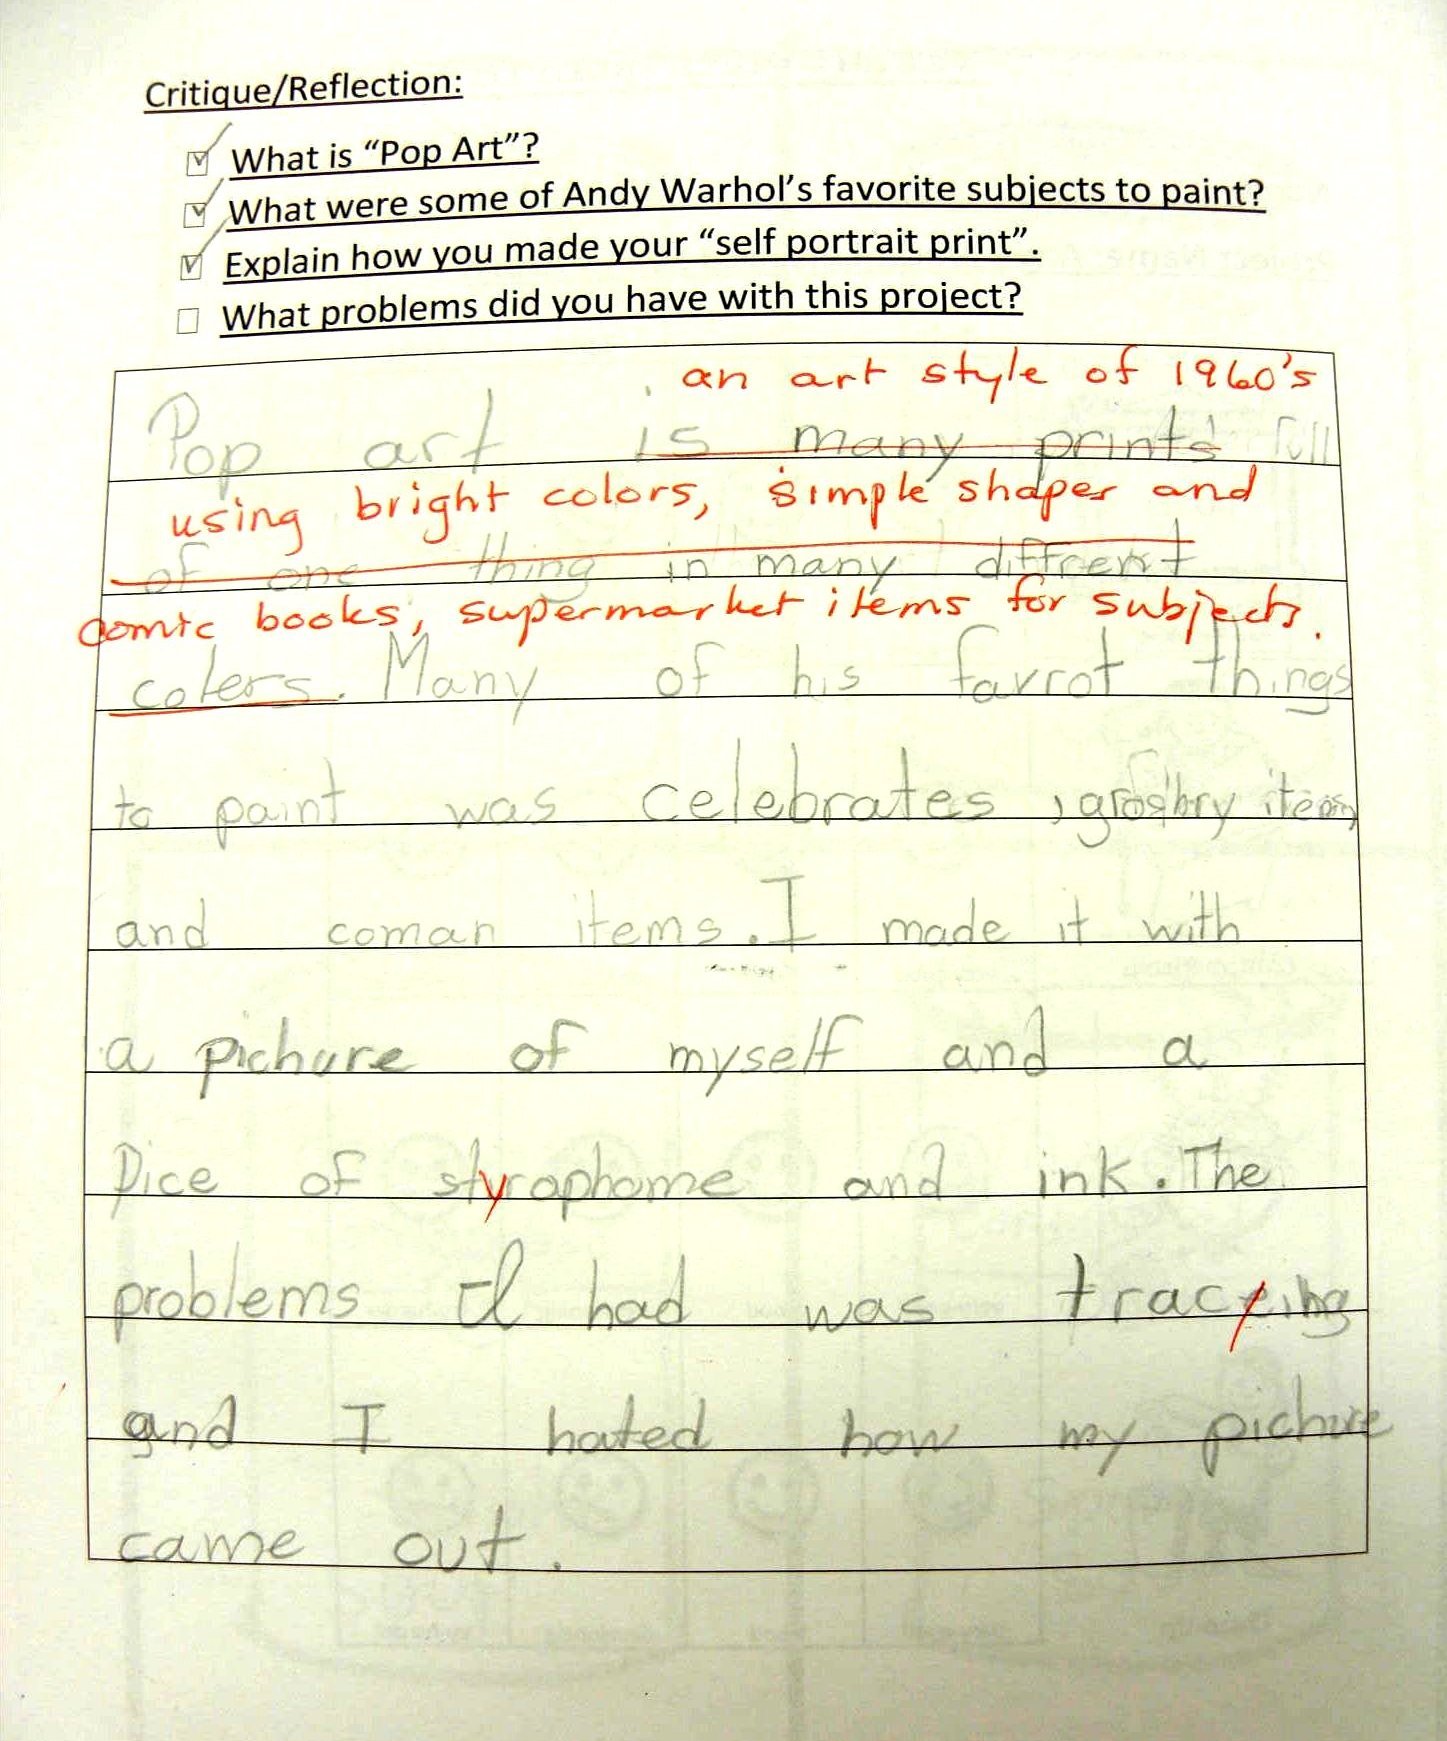 Critique/Reflection:
What is “Pop Art”?
What were some of Andy Warhol’s favorite subjects to paint?
Explain how you made your “self portrait print”.
What problems did you have with this project?
an art style of 1960's
Pop art is many prints full
using bright colors, simple shapes and
of one thing in many diffrent
comic books, supermarket items for subjects.
colers. Many of his favrot things
to paint was celebrates, items
and coman items. I made it with
a pichure of myself and a
Pice of styrophome and ink. The
problems I had was tracing
and I hated how my pichure
came out.